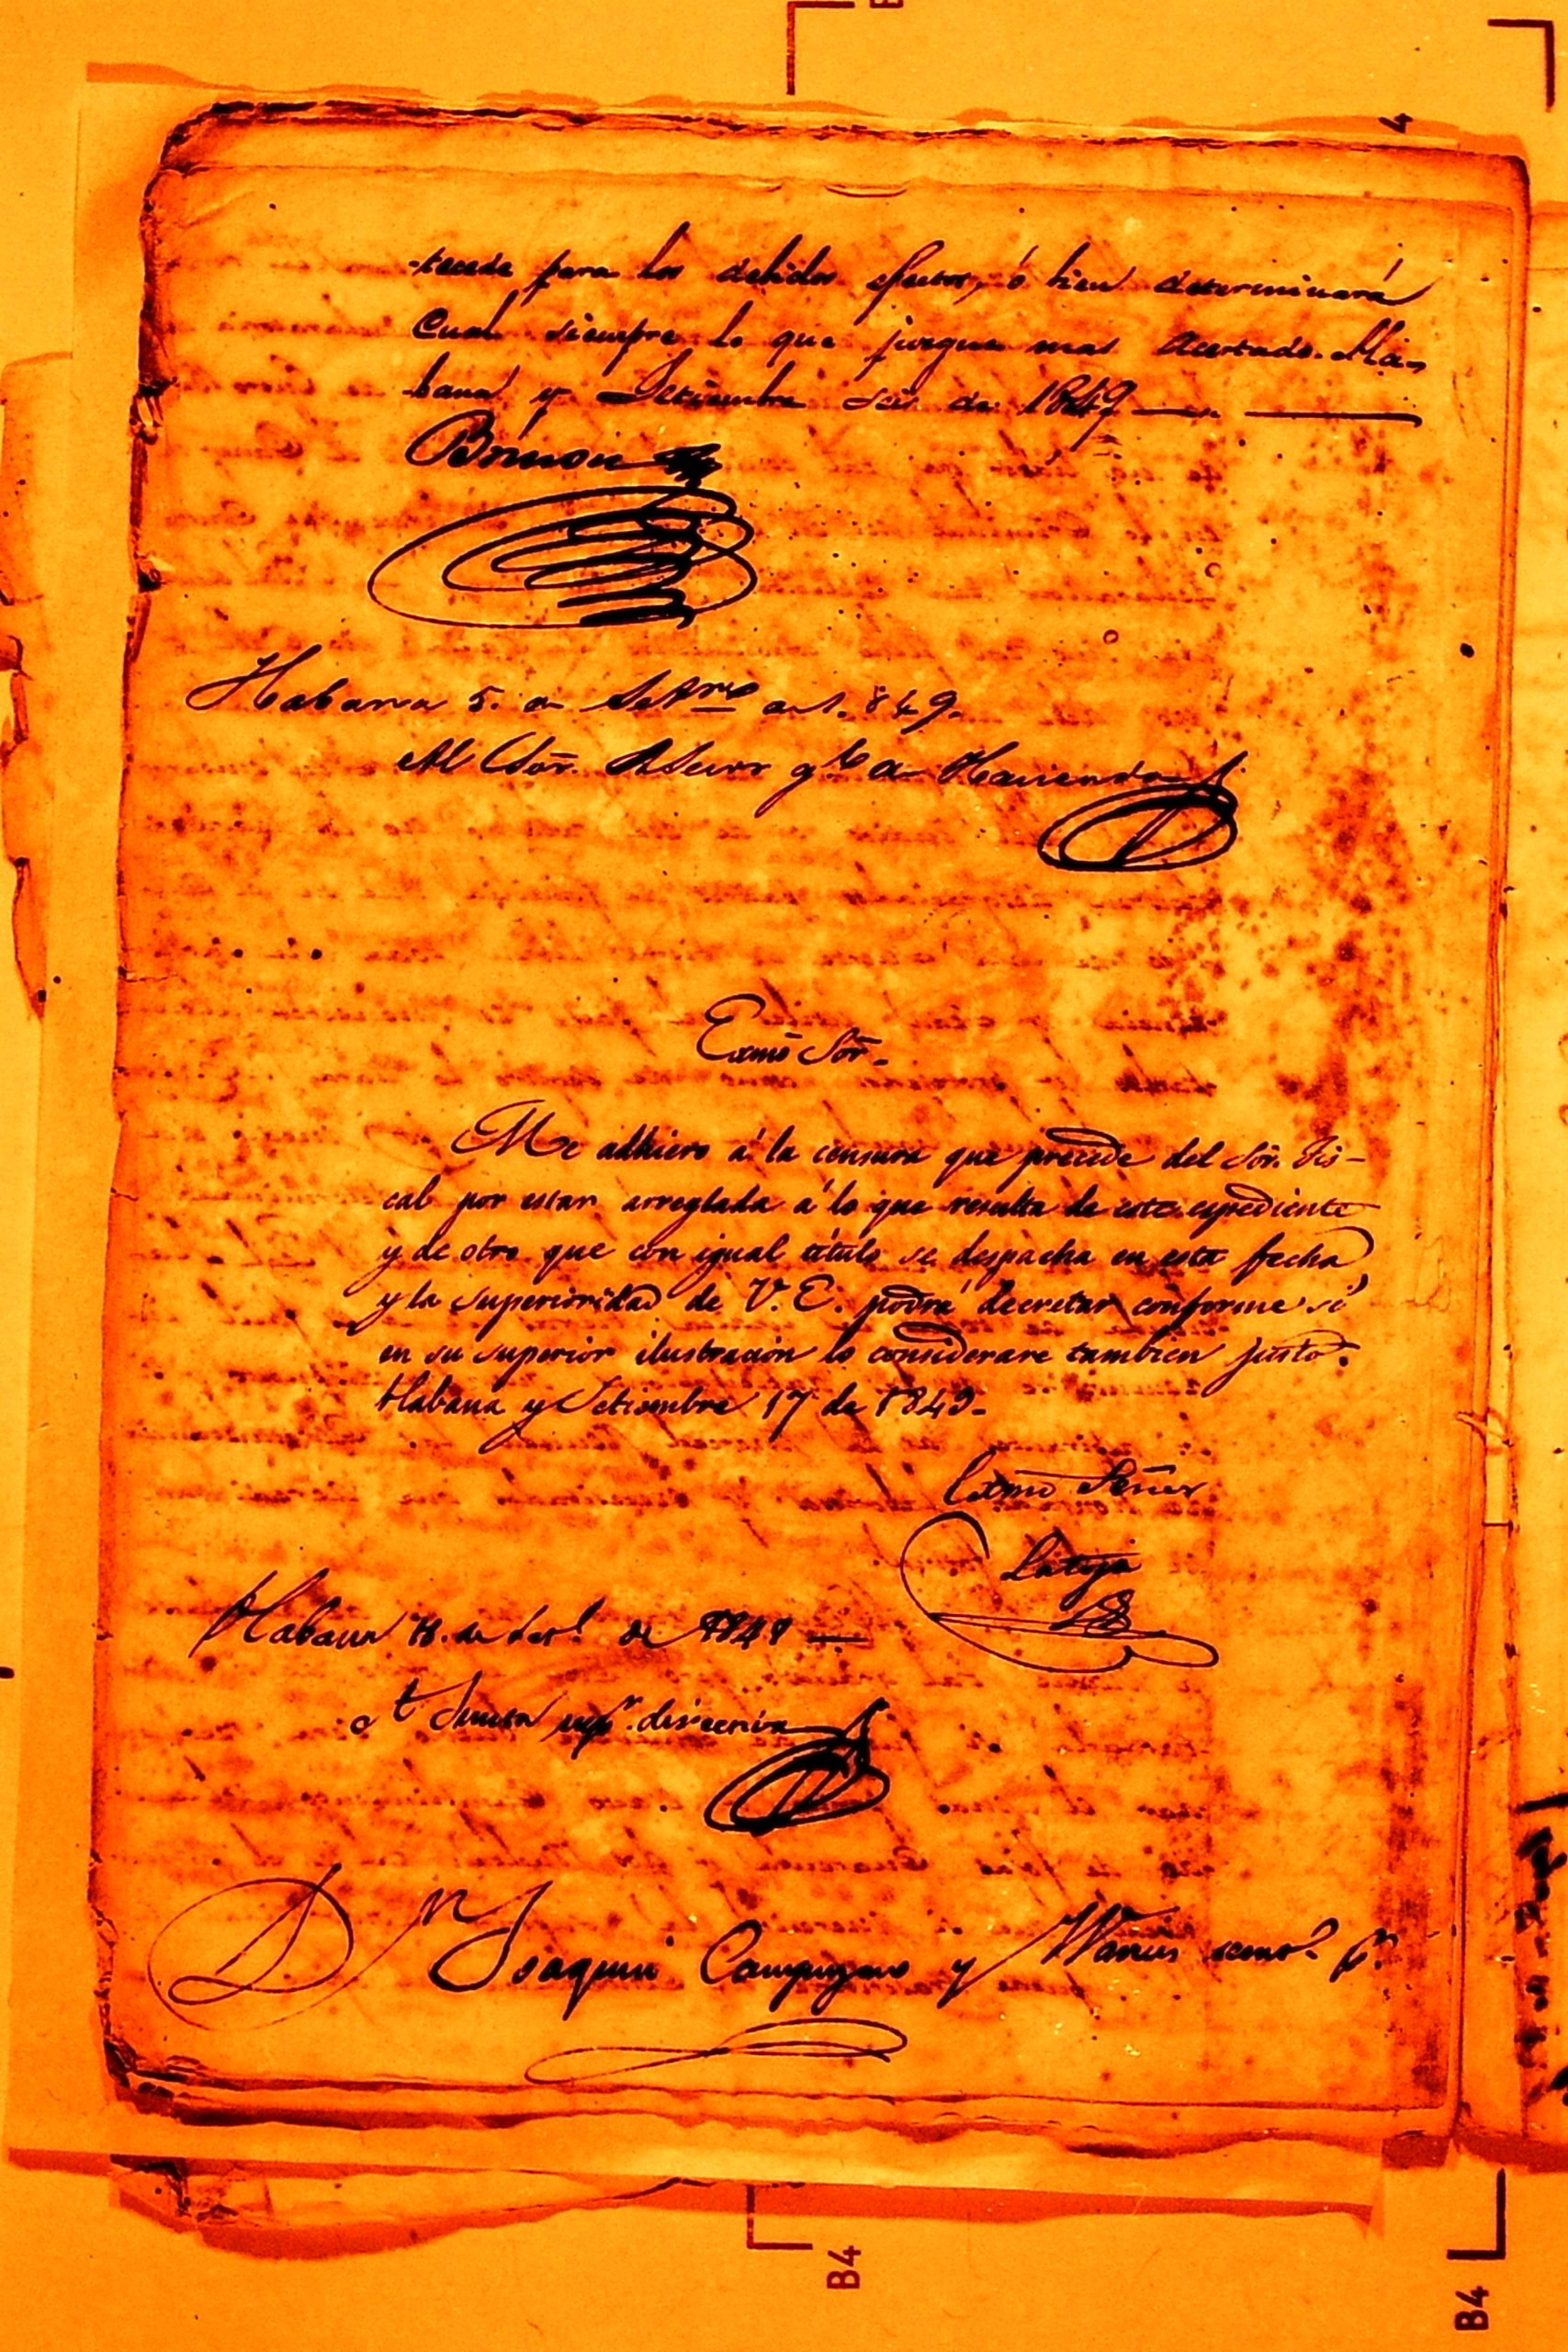 -tecede para los debidos efectos, ó bien determinará
cual siempre lo que juzgue mas acertado. Ha-
bana y Setiembre seis de 1849
Habana 5. de Set.re de 1849.
Al Sor. Asesor gral de Hacienda
Exmo Sor.
Me adhiero á la censura que precede del Sor. Fis-
cal por estar arreglada á lo que resulta de este espediente
y de otro que con igual título se despacha en esta fecha
y la superioridad de V. E. podrá decretar conforme si
en su superior ilustracion lo considerare tambien justo.
Habana y Setiembre 17 de 1849.
Exmo Señor
Latoja
Habana 18. de Set. de 1849
A Junta directiva
Dn Joaquin Campuzano y
B4
B4